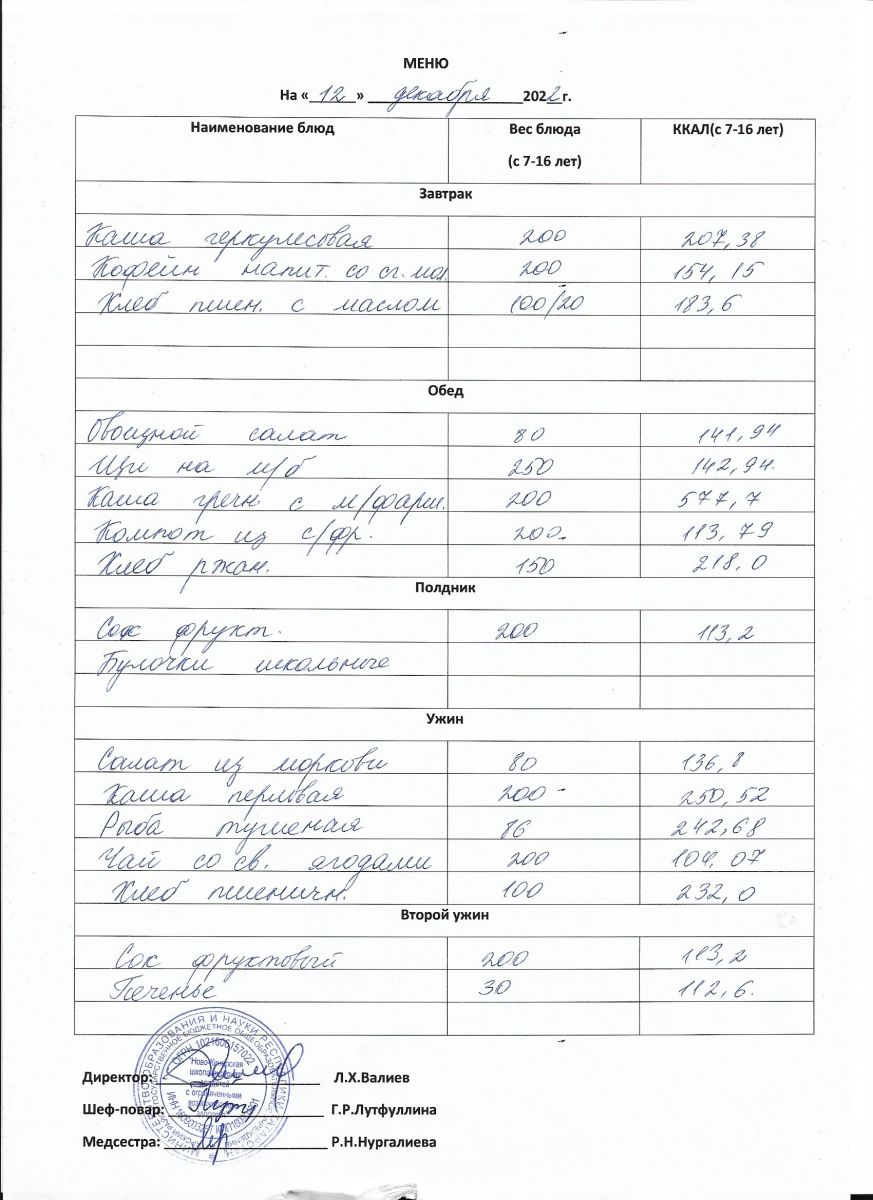 МЕНЮ
На « 12 » декабря 2022 г.
Наименование блюд Вес блюда (с 7-16 лет) ККАЛ(с 7-16 лет)
Завтрак
Каша геркулесовая 200 207,38
Кофейн напит. со сг. мол. 200 154,15
Хлеб пшен. с маслом 100/20 183,6
Обед
Овощной салат 80 141,94
Щи на м/б 250 142,94.
Каша гречн с м/фарш. 200 577,7
Компот из с/фр. 200 113,79
Хлеб ржан. 150 218,0
Полдник
Сок фрукт. 200 113,2
Булочки школьные
Ужин
Салат из моркови 80 136,8
Каша перловая 200 250,52
Рыба тушеная 86 242,68
Чай со св. ягодами 200 104,07
Хлеб пшеничн. 100 232,0
Второй ужин
Сок фруктовый 200 113,2
Печенье 30 112,6.
Директор: Л.Х.Валиев
Шеф-повар: Г.Р.Лутфуллина
Медсестра: Р.Н.Нургалиева